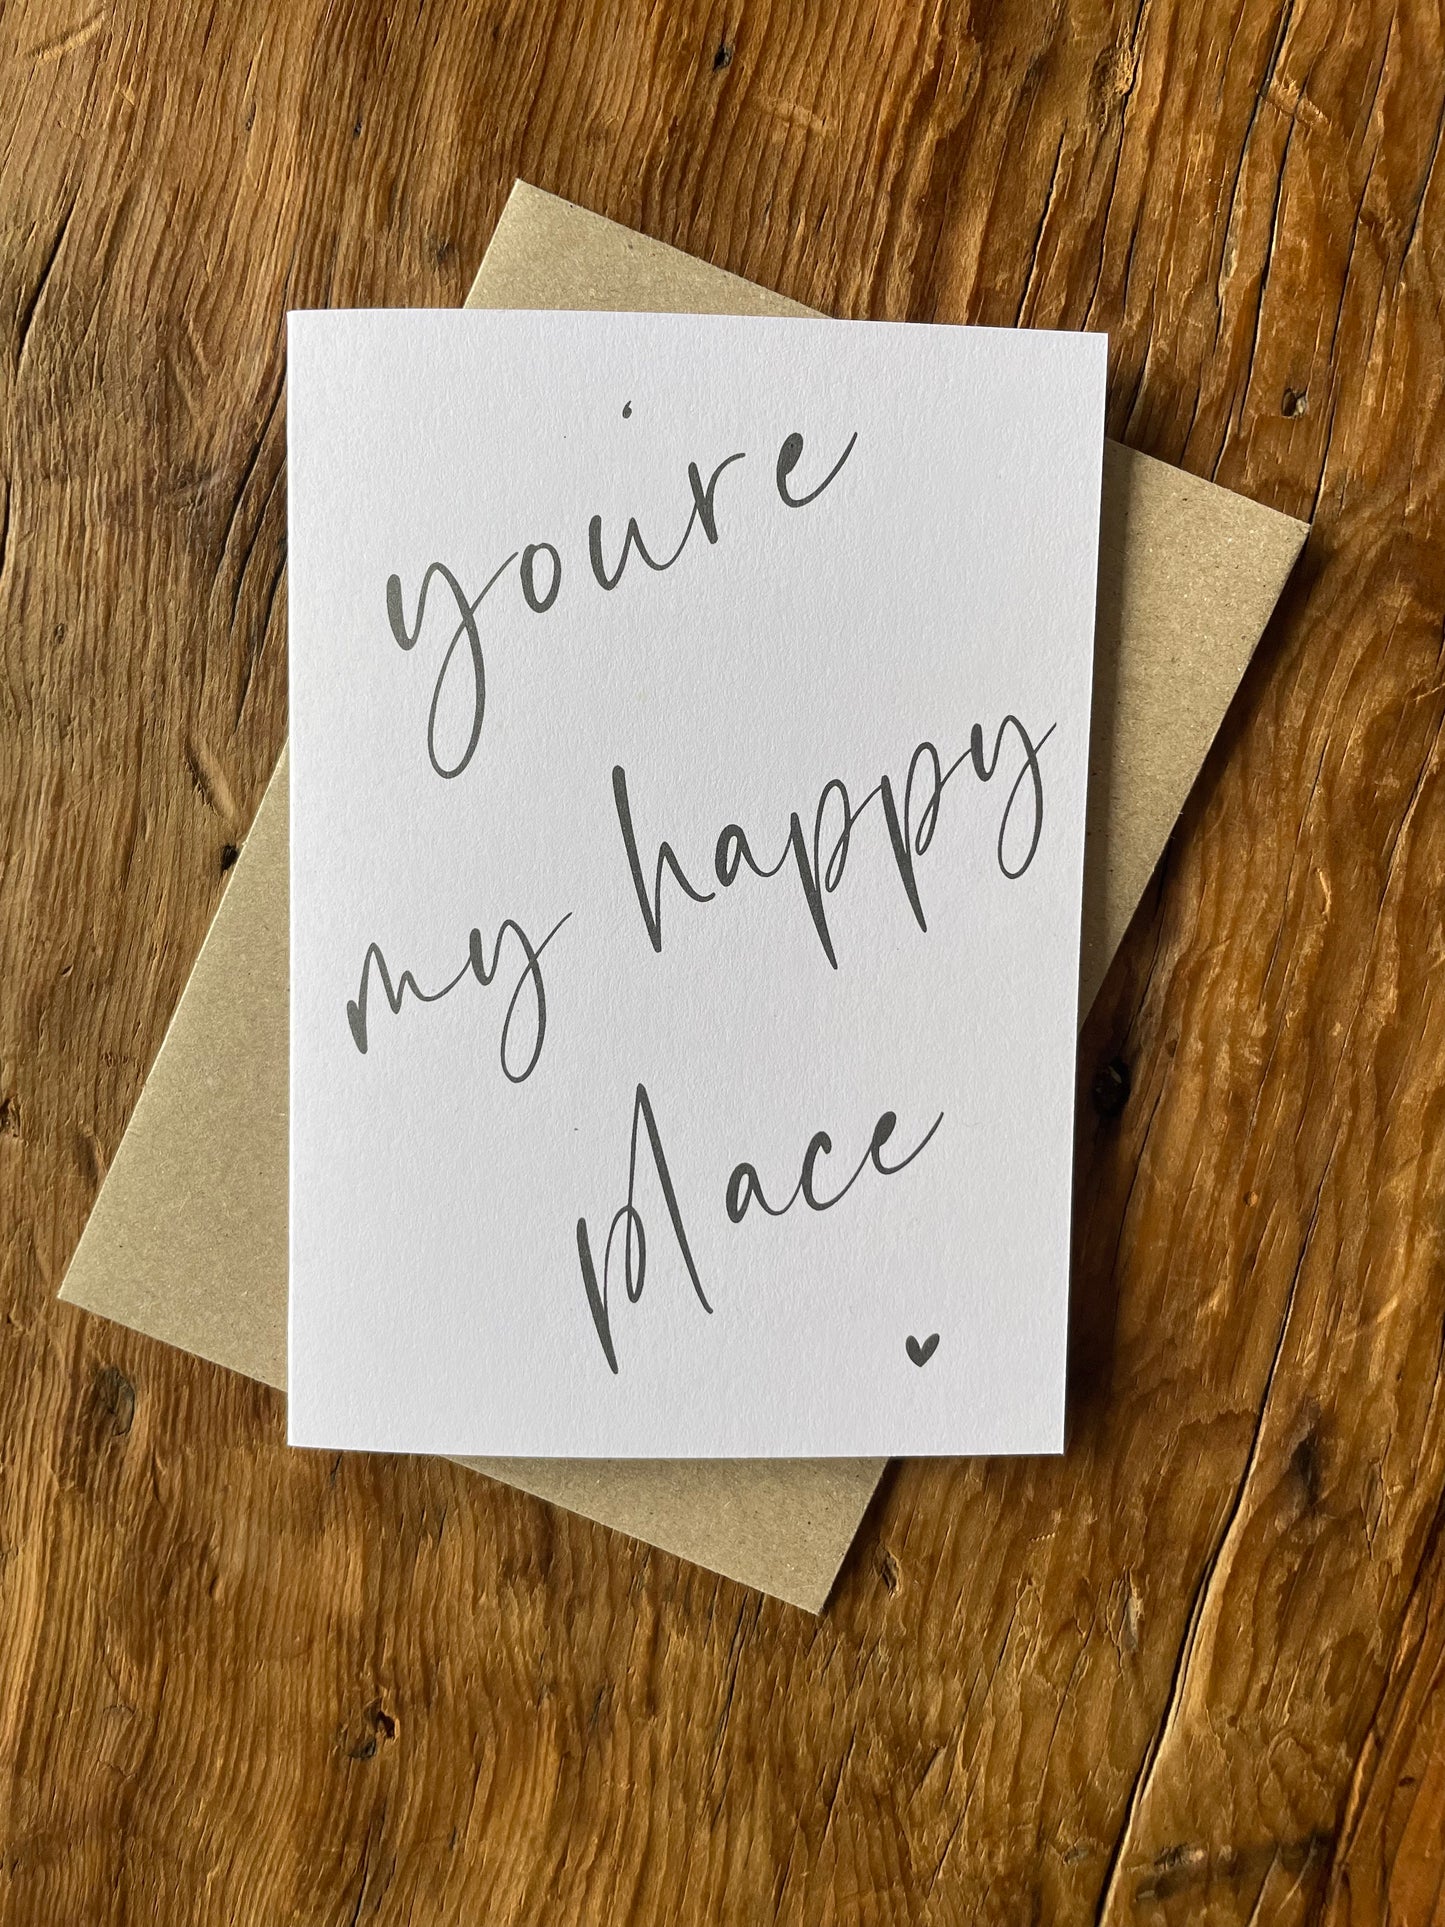 you're
my happy
place